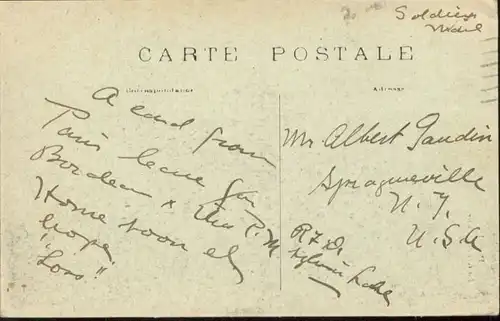 Soldiers
Mail
CARTE POSTALE
Correspondance
Adresse
A card from
Paris leave for
Bordeau x this P.M
Home soon
hope.
"Loss"
Mr Albert Gaudin
Spragueville
N. Y.
U. S. a
R F D.
Sylvia Lake